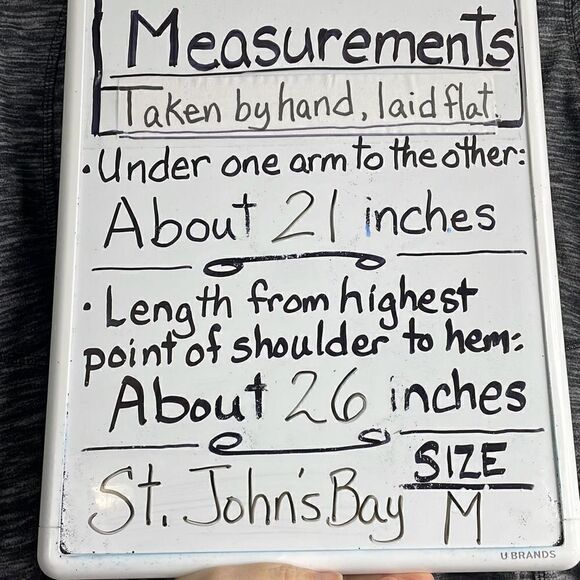 Measurements
Taken by hand, laid flat
• Under one arm to the other:
About 21 inches
• Length from highest
point of shoulder to hem:
About 26 inches
SIZE
St. John's Bay M
U BRANDS